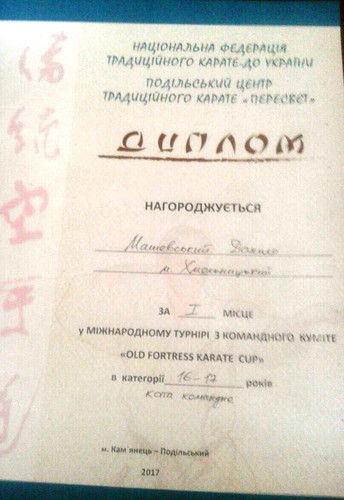 傳統空手道
НАЦІОНАЛЬНА ФЕДЕРАЦІЯ
ТРАДИЦІЙНОГО КАРАТЕ-ДО УКРАЇНИ
ПОДІЛЬСЬКИЙ ЦЕНТР
ТРАДИЦІЙНОГО КАРАТЕ «ПЕРЕСВЕТ»
ДИПЛОМ
НАГОРОДЖУЄТЬСЯ
Машовський Данило
м. Хмельницький
ЗА I МІСЦЕ
у МІЖНАРОДНОМУ ТУРНІРІ З КОМАНДНОГО КУМІТЕ
«OLD FORTRESS KARATE CUP»
в категорії 16-17 років
ката командне
м. Кам`янець – Подільський
2017